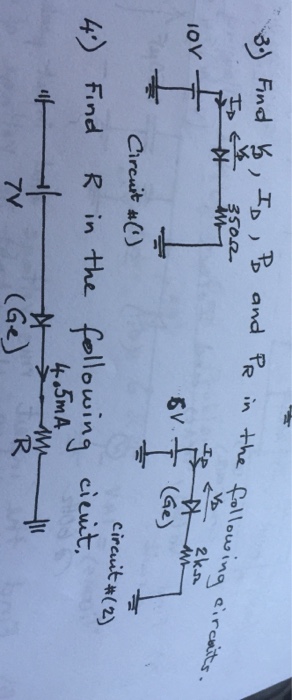 3.) Find V_D, I_D, P_D and P_R in the following circuits.
10V
I_D
V_D
350Ω
Circuit #(1)
8V
I_D
V_D
(Ge)
2kΩ
circuit #(2)
4.) Find R in the following cicuit.
7V
(Ge)
4.5mA
R